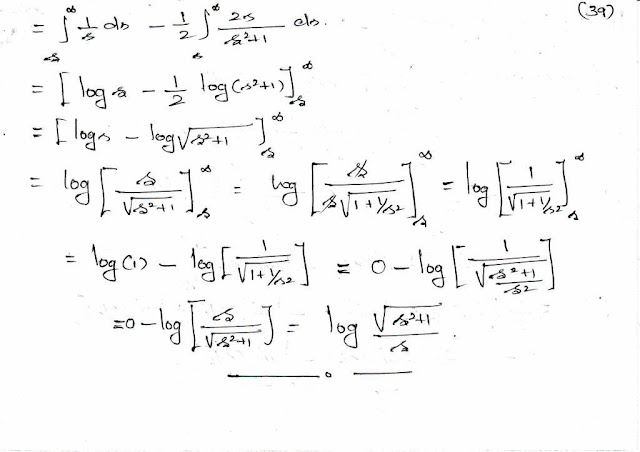 (39)
= ∫_s^∞ 1/s ds − 1/2 ∫_s^∞ 2s/(s²+1) ds.
= [log s − 1/2 log(s²+1)]_s^∞
= [log s − log √(s²+1)]_s^∞
= log [s/√(s²+1)]_s^∞ = log [s/(s√(1+1/s²))]_s^∞ = log [1/√(1+1/s²)]_s^∞
= log(1) − log [1/√(1+1/s²)] = 0 − log [1/√((s²+1)/s²)]
= 0 − log [s/√(s²+1)] = log √(s²+1)/s.